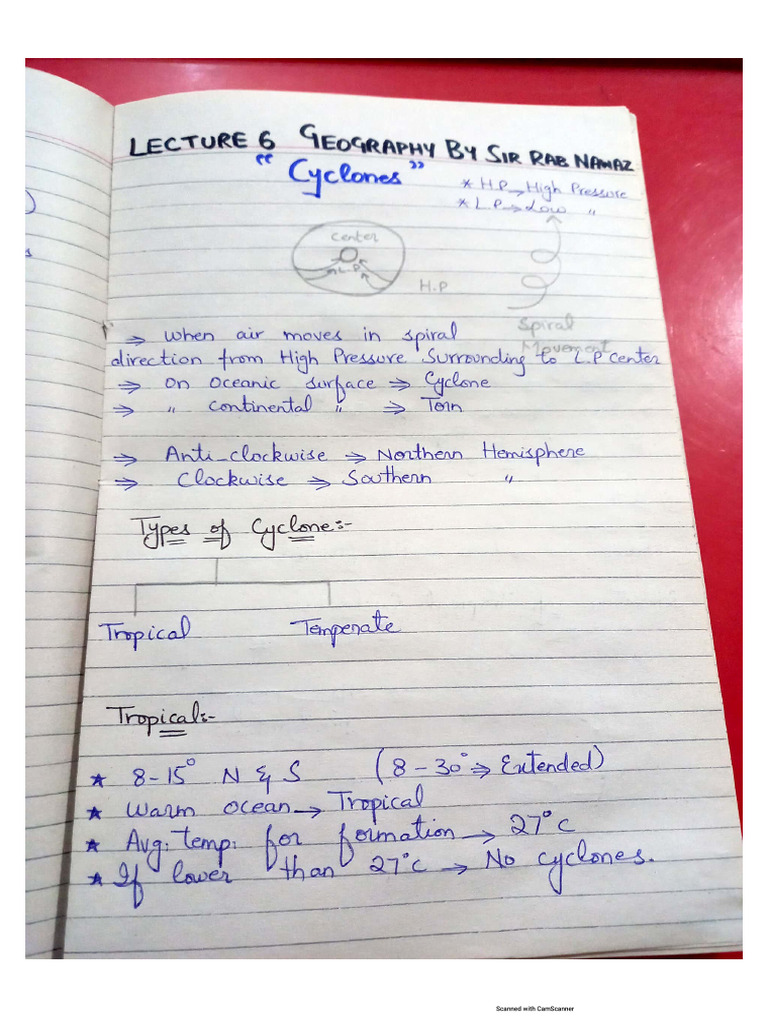 LECTURE 6 GEOGRAPHY BY SIR RAB NAWAZ
"Cyclones"
* H.P → High Pressure
* L.P → Low "
Center
L.P
H.P
Spiral
Movement
⇒ When air moves in spiral
direction from High Pressure Surrounding to L.P Center
⇒ On Oceanic surface ⇒ Cyclone
⇒ " Continental " ⇒ Torn
⇒ Anti-clockwise ⇒ Northern Hemisphere
⇒ Clockwise ⇒ Southern "
Types of Cyclone:-
Tropical Temperate
Tropical:-
* 8-15° N & S (8-30° ⇒ Extended)
* Warm ocean → Tropical
* Avg. temp. for formation → 27°C
* If lower than 27°C → No cyclones.
Scanned with CamScanner